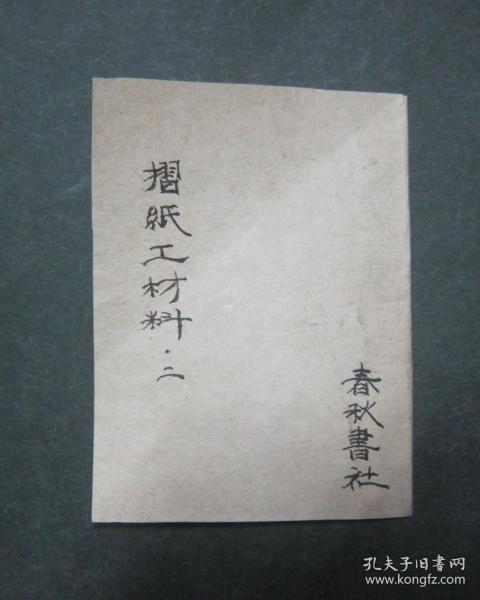 摺紙工材料·二
春秋書社
孔夫子旧书网
www.kongfz.com